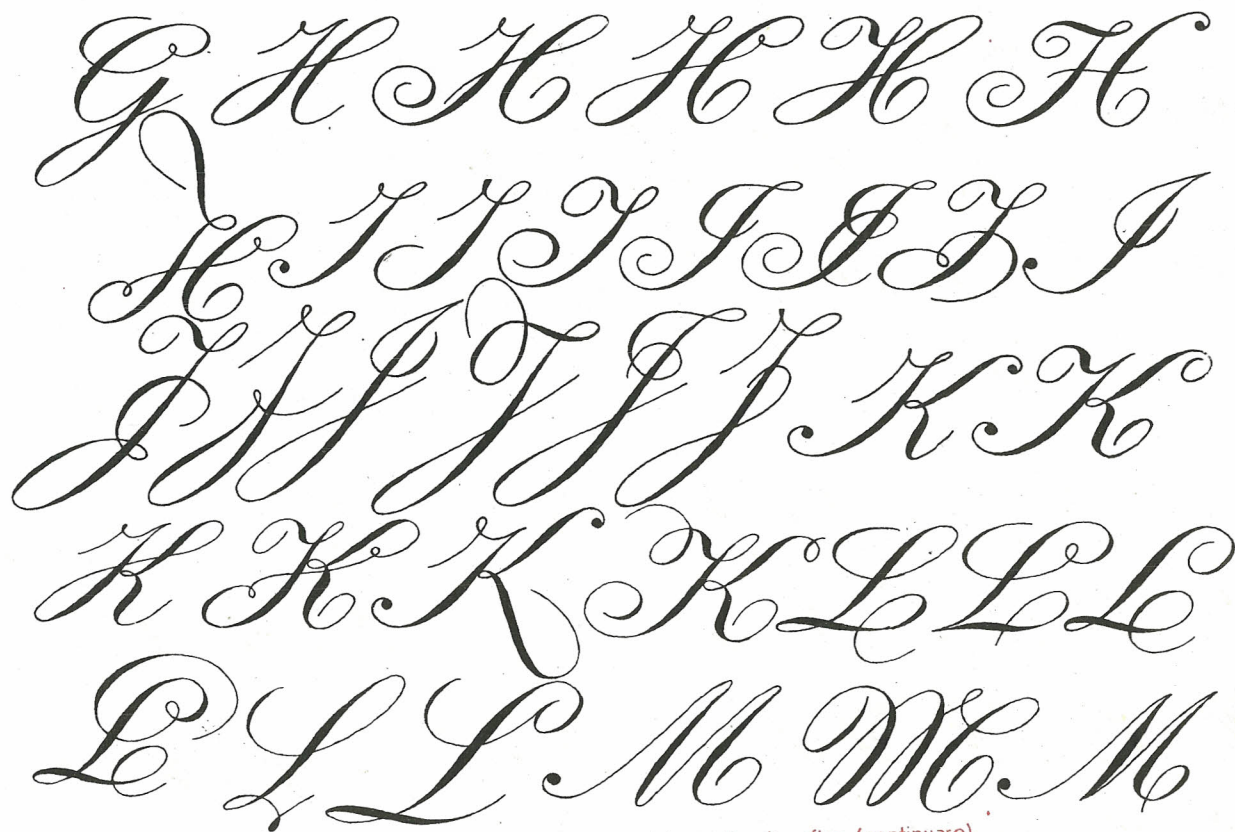 G H H H H H
H I I I I I I I
J J J J J J K K
K K K K L L L
L L L M M M
(continuare)